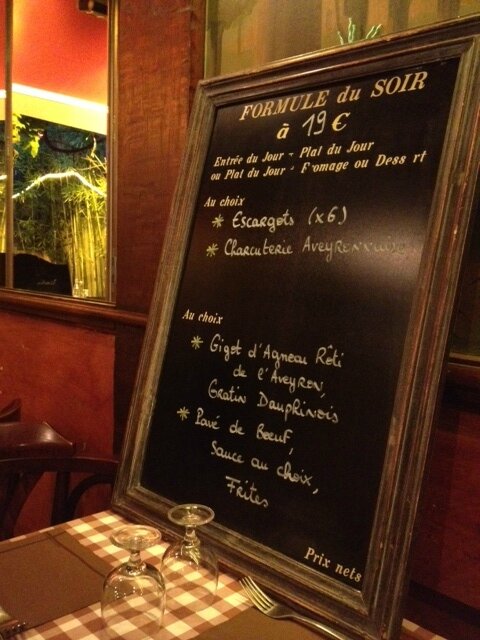 FORMULE du SOIR
à 19 €
Entrée du Jour - Plat du Jour
ou Plat du Jour - Fromage ou Dess rt
Au choix
* Escargots (x6)
* Charcuterie Aveyronnaise
Au choix
* Gigot d'Agneau Rôti
de l'Aveyron,
Gratin Dauphinois
* Pavé de Boeuf,
Sauce au choix,
Frites
Prix nets